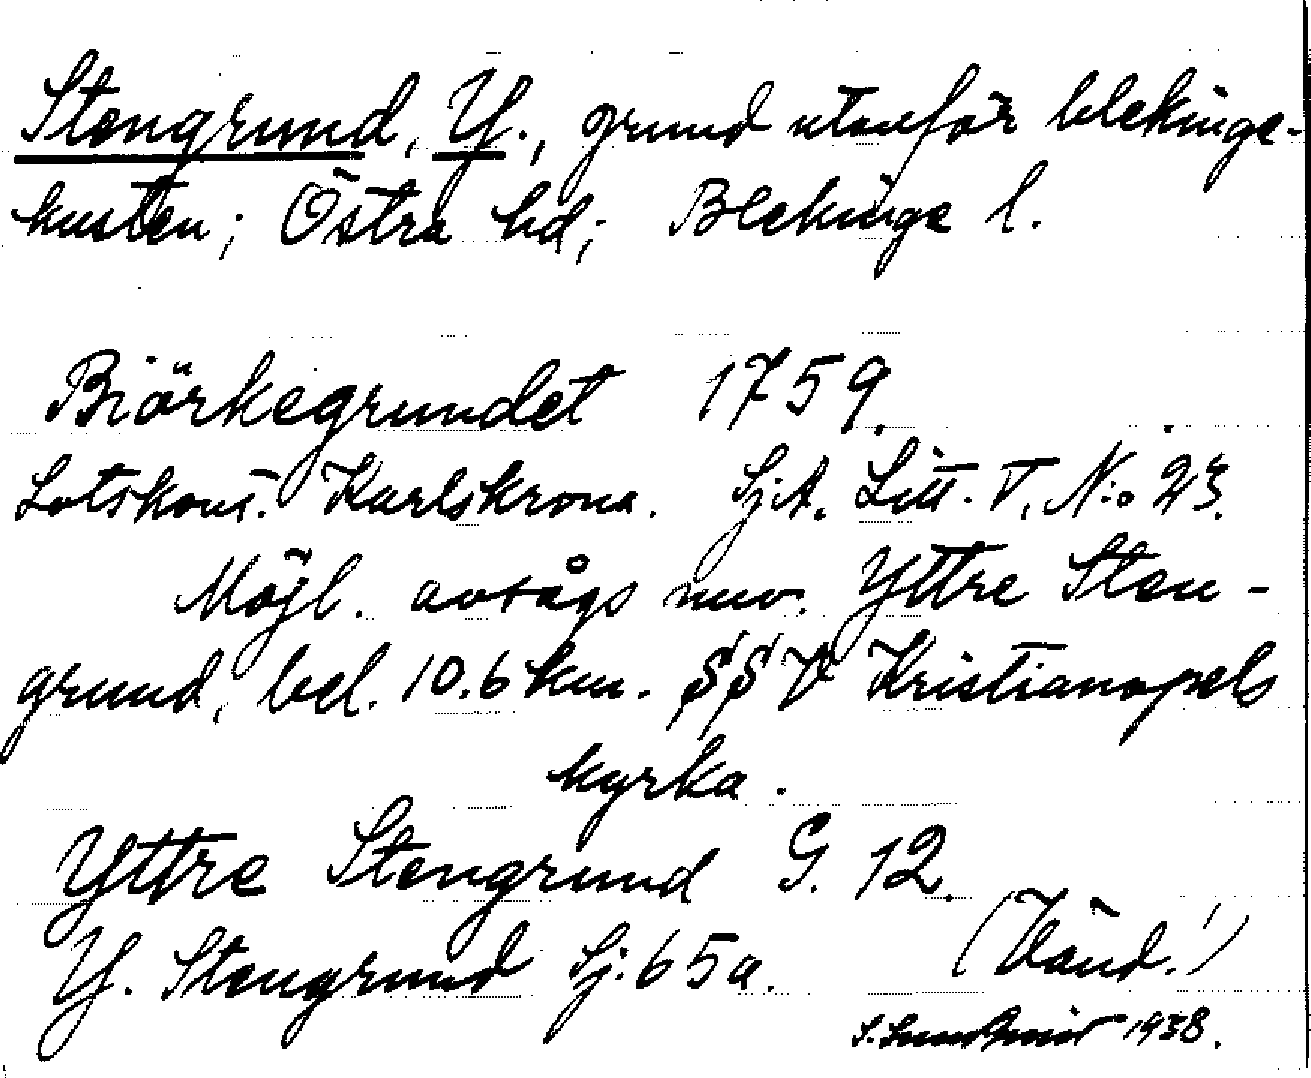 Stengrund, Y., grund utanför blekinge-
kusten; Östra hd; Blekinge l.
Biörkegrundet 1759.
Lotskont. Karlskrona. Sj.A. Litt. V. N:o 23.
Möjl. avsågs nuv. Yttre Sten-
grund, bel. 10.6 km. S V Kristianopels
kyrka.
Yttre Stengrund G. 12.
Y. Stengrund Sj. 65a.
(Vänd!)
1938.